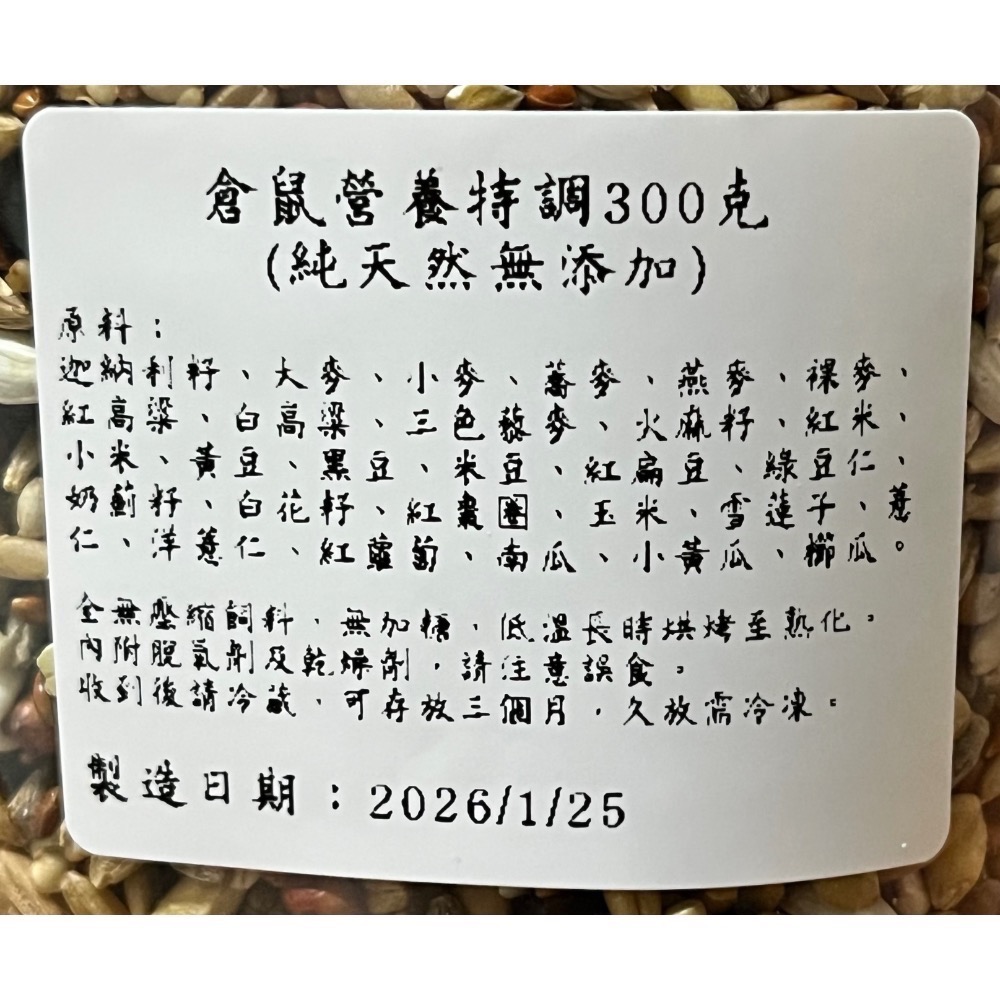 倉鼠營養特調300克
(純天然無添加)
原料：
迦納利籽、大麥、小麥、蕎麥、燕麥、裸麥、
紅高粱、白高粱、三色藜麥、火麻籽、紅米、
小米、黃豆、黑豆、米豆、紅扁豆、綠豆仁、
奶薊籽、白花籽、紅棗圈、玉米、雪蓮子、薏
仁、洋薏仁、紅蘿蔔、南瓜、小黃瓜、櫛瓜。
全無壓縮飼料，無加糖，低溫長時烘烤至熟化。
內附脫氧劑及乾燥劑，請注意誤食。
收到後請冷藏，可存放三個月，久放需冷凍。
製造日期：2026/1/25